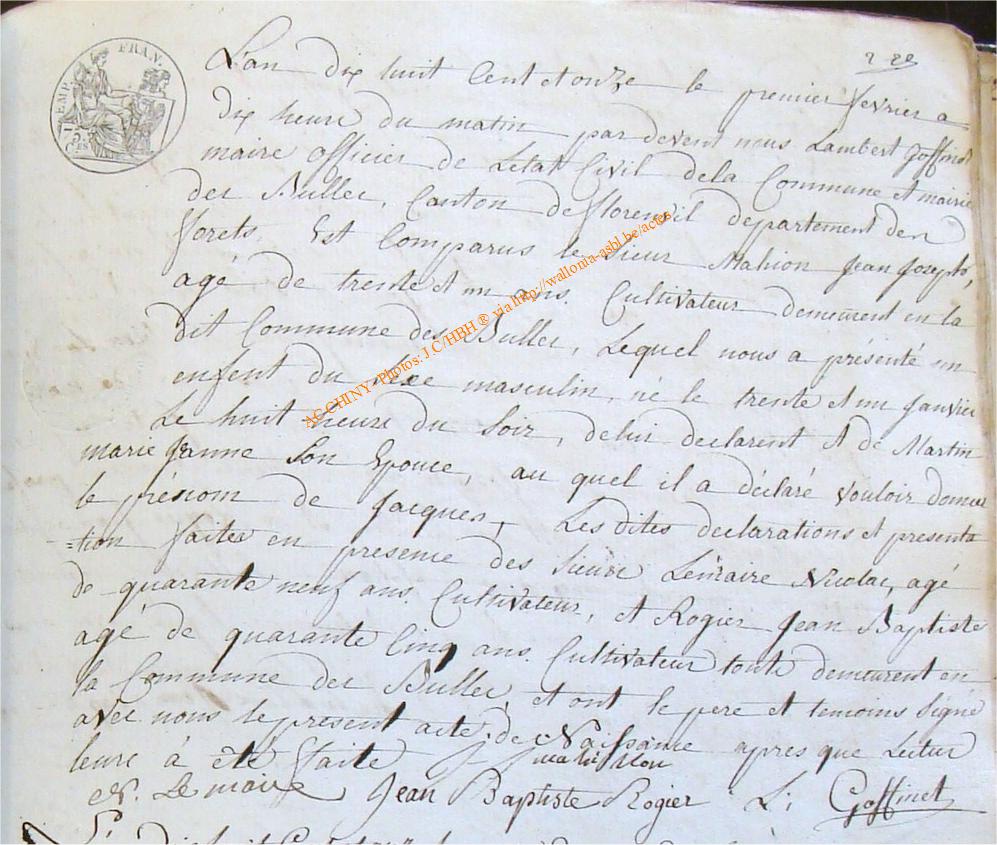 L'an dix huit Cent et onze le premier fevrier a
dix heure du matin par devent nous Lambert Goffinet
maire officier de L'etat Civil de la Commune et mairie
des Bulles, Canton de florenvil departement des
forets. Est Comparus le Sieur Mahion Jean Joseph,
agé de trente et un ans. Cultivateur demeurent en la
dit Commune des Bulles, Lequel nous a présenté un
enfent du sexe masculin, né le trente et un Janvier
Le huit heure du Soir, de lui declarent et de Martin
marie Janne Son Epouce, au quel il a déclaré vouloir donner
le prénom de Jacques, Les dites declarations et presenta
=tion faites en presence des Sieurs Lemaire Nicolas, agé
de quarante neuf ans. Cultivateur, et Rogier Jean Baptiste
agé de quarante Cinq ans. Cultivateur tout demeurent en
la Commune des Bulles, et ont le pere et temoins Signé
avec nous le present acte de Naissance apres que Lectur
leure à été faite J J mahillon
N. Lemaire Jean Baptiste Rogier L: Goffinet
EMP. FRAN.
AC CHINY - Photos: J.C/HBH ® via http://wallonia-asbl.be/actes